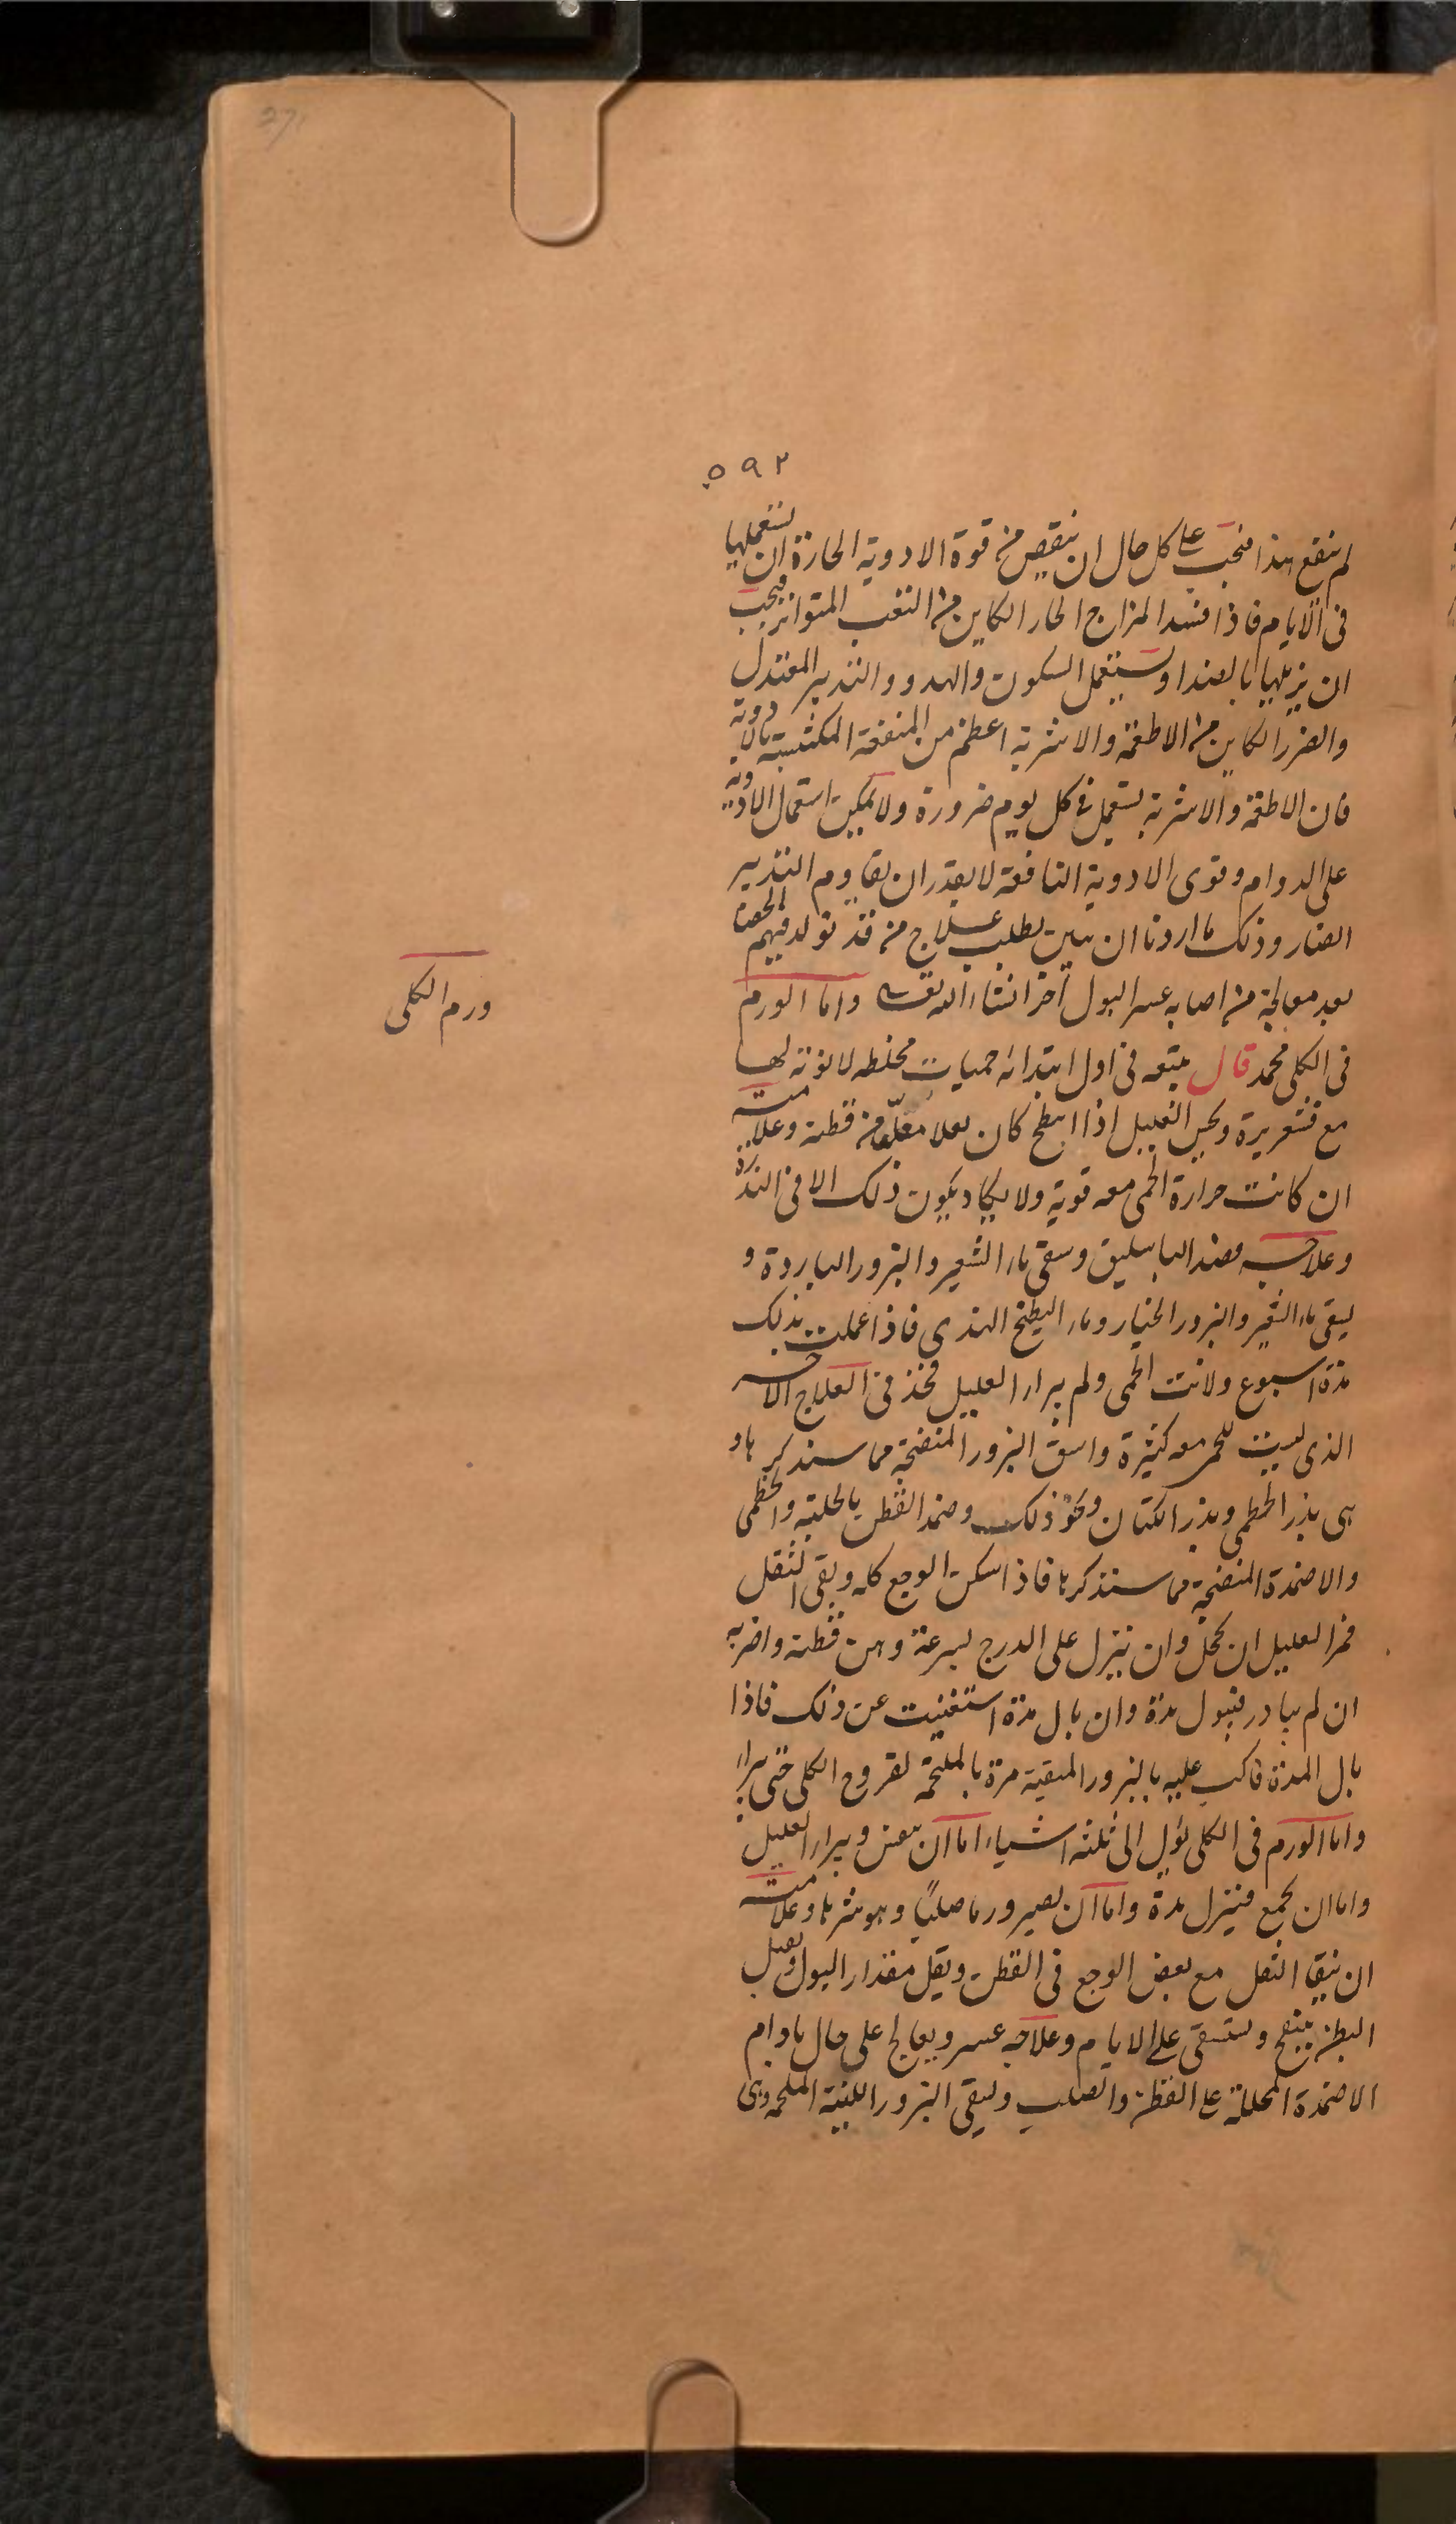 371
۵۹۲
لم ينفع هذا فيجب على كل حال ان ينقص من قوة الادوية الحارة ان يستعملها
فى الايام فاذا فسد المزاج الحار الكاين من التعب المتواتر فيجب
ان يزيلها بالضد او يستعمل السكون والهدو والتدبير المعتدل
والضرر الكاين من الاطعمة والاشربة اعظم من المنفعة المكتسبة بالادوية
فان الاطعمة والاشربة يستعمل فى كل يوم ضرورة ولا يمكن استعمال الادوية
على الدوام وقوى الادوية النافعة لا يقدر ان يقاوم التدبير
الضار وذلك ما اردنا ان نبين بطلب علاج من قد تولد فيهم الحصا
بعد معالجة من اصابه عسر البول آخر انشاء الله تعالى واما الورم
فى الكلى محمد قال يتبعه فى اول ابتدائه حميات مخلطه لا نوبة لها
مع قشعريرة ويحس العليل اذا انبطح كان ثقلا معلّقا من قطنه وعلامته
ان كانت حرارة الحمى معه قوية ولا يكاد يكون ذلك الا فى الندرة
وعلاجه فصد الباسليق وسقى ماء الشعير والبزور الباردة و
يسقى ماء الشعير والبزور الخيار وماء البطيخ الهندى فاذا عملت بذلك
مدة اسبوع ولانت الحمى ولم يبراء العليل فخذ فى العلاج الآخر
الذى ليست للحمى معه كثيرة واسق البزور المنضجة مما سنذكرها و
هى بذر الخطمى وبذر الكتان ونحو ذلك وضمد القطن بالحلبة والخطمى
والاضمدة المنضجة مما سنذكرها فاذا سكن الوجع كله وبقى الثقل
فمر العليل ان يحجل وان ينزل على الدرج بسرعة وهن قطنه واضربه
ان لم يبادر فيبول مدة وان بال مدة استغنيت عن ذلك فاذا
بال المدة فاكب عليه بالبزور المنقية مرة بالملحمة لقروح الكلى حتى يبراء
واما الورم فى الكلى يؤل الى ثلثه اشياء اما ان يعفن ويبراء العليل
واما ان يجمع فينزل مدة واما ان يصير ورما صلبًا وهو شرها وعلامته
ان يبقا الثقل مع بعض الوجع فى القطن ويقل مقدار البول ويعبل
البطن ينتفخ ويستسقى على الايام وعلاجه عسر ويعالج على حال بادوام
الاضمدة المحللة على القطن والصلب ويسقى البزور اللينة الملحمه وهى
ورم الكلى